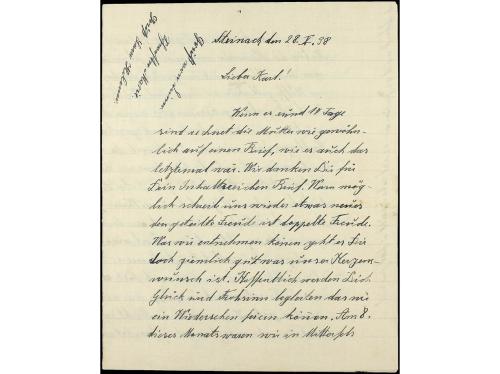 Steinach den 28. X. 38
Lieber Karl!
Wenn es rund 10 Tage
sind rechnet die Mutter wie gewöhn-
lich auf einen Brief, wie es auch das
letztemal war. Wir danken Dir für
Dein Inhaltsreichen Brief. Wenn mög-
lich schreib uns wieder etwas neues
den geteilte Freude ist doppelte Freude.
Was wir entnehmen können geht es Dir
doch ziemlich gut was unser Herzens-
wunsch ist. Hoffentlich werden Dich
Glück und Frohsinn begleiten das wir
ein Wiedersehen feiern können. Am 8.
dieses Monats waren wir in Mitterfels